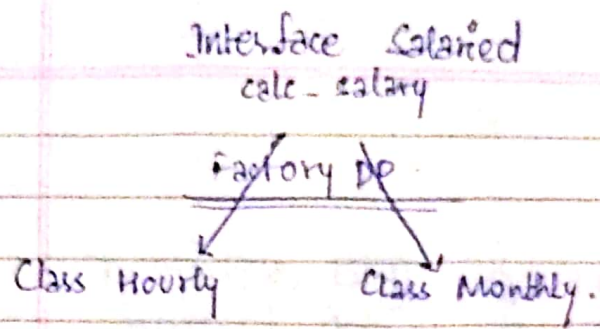 Interface Salaried
calc_salary
Factory DP
Class Hourly Class Monthly.